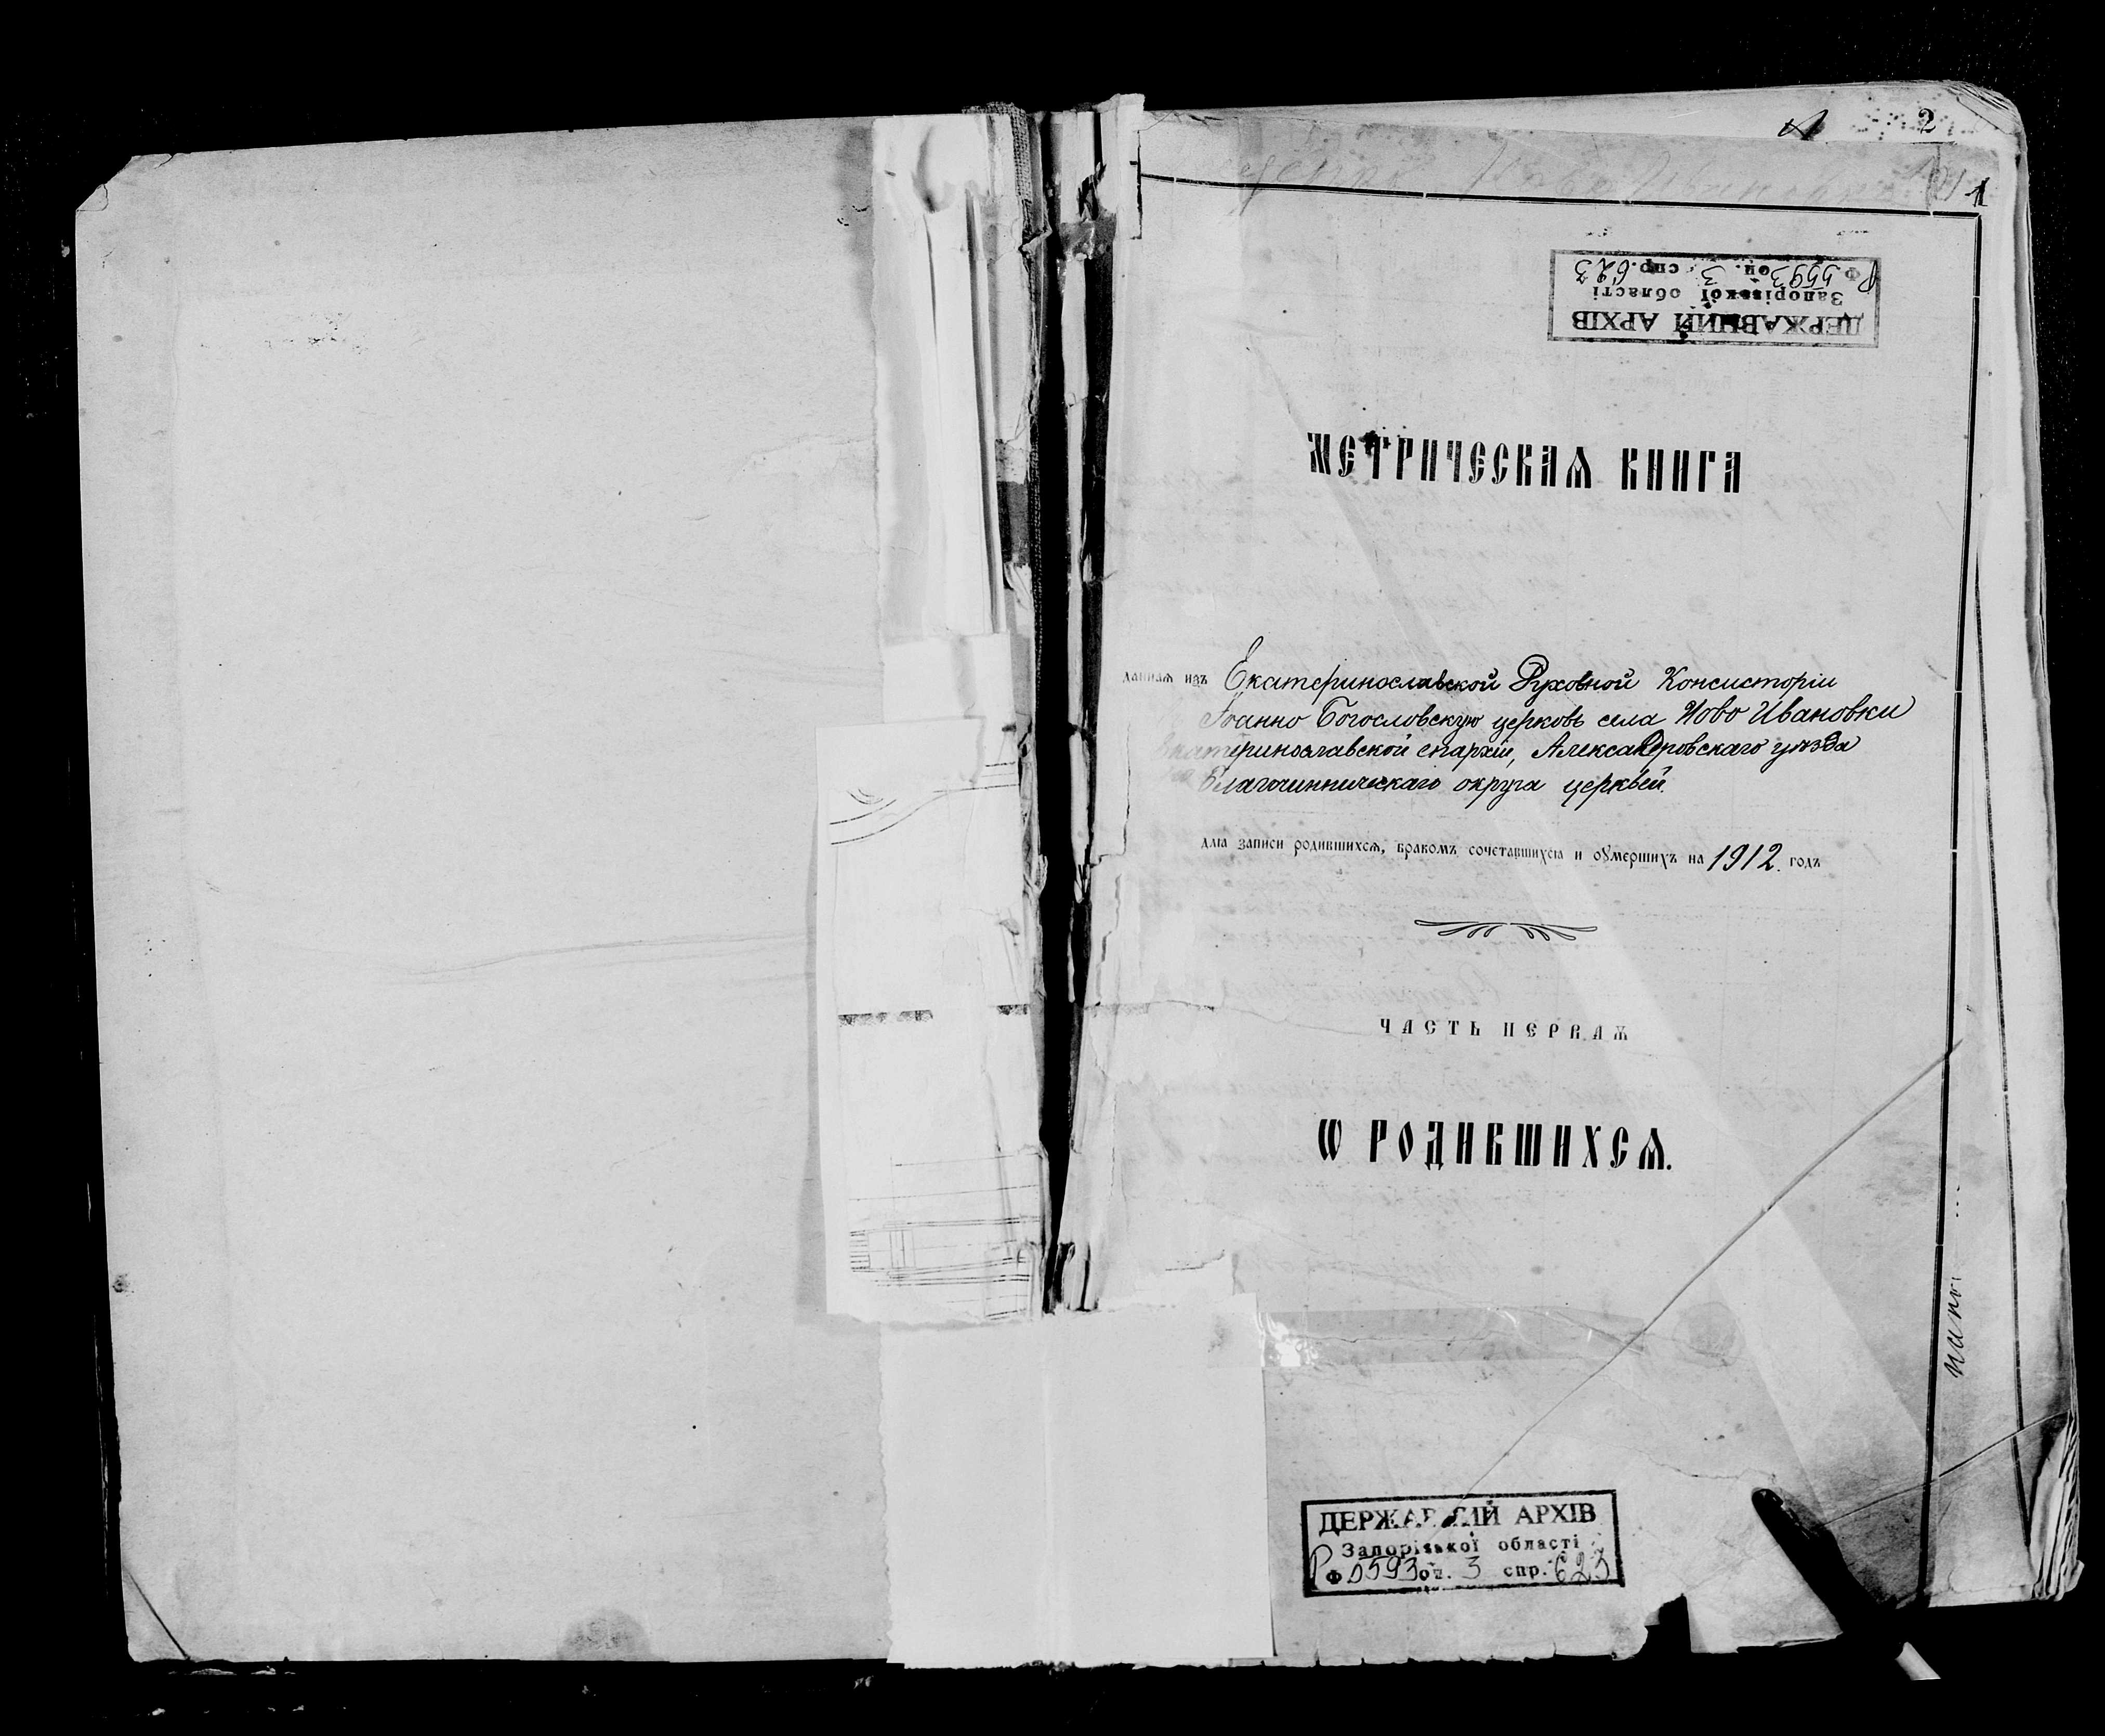 2
1
ДЕРЖАВНИЙ АРХІВ
Запорізької області
Р Ф 5593 оп. 3 спр. 623
МЕТРИЧЕСКАѦ КНИГА
даннаѧ изъ Екатеринославской Духовной Консисторіи
Іоанно Богословскую церковь села Ново Ивановки
Екатеринославской епархіи, Александровскаго уѣзда
Благочинническаго округа церквей.
длѧ записи родившихсѧ, бракомъ сочетавшихсѧ и оумершихъ на 1912. годъ
ЧАСТЬ ПЕРВАѦ
Ѡ РОДИВШИХСѦ.
ДЕРЖАВНИЙ АРХІВ
Запорізької області
Р Ф 5593 оп. 3 спр. 623